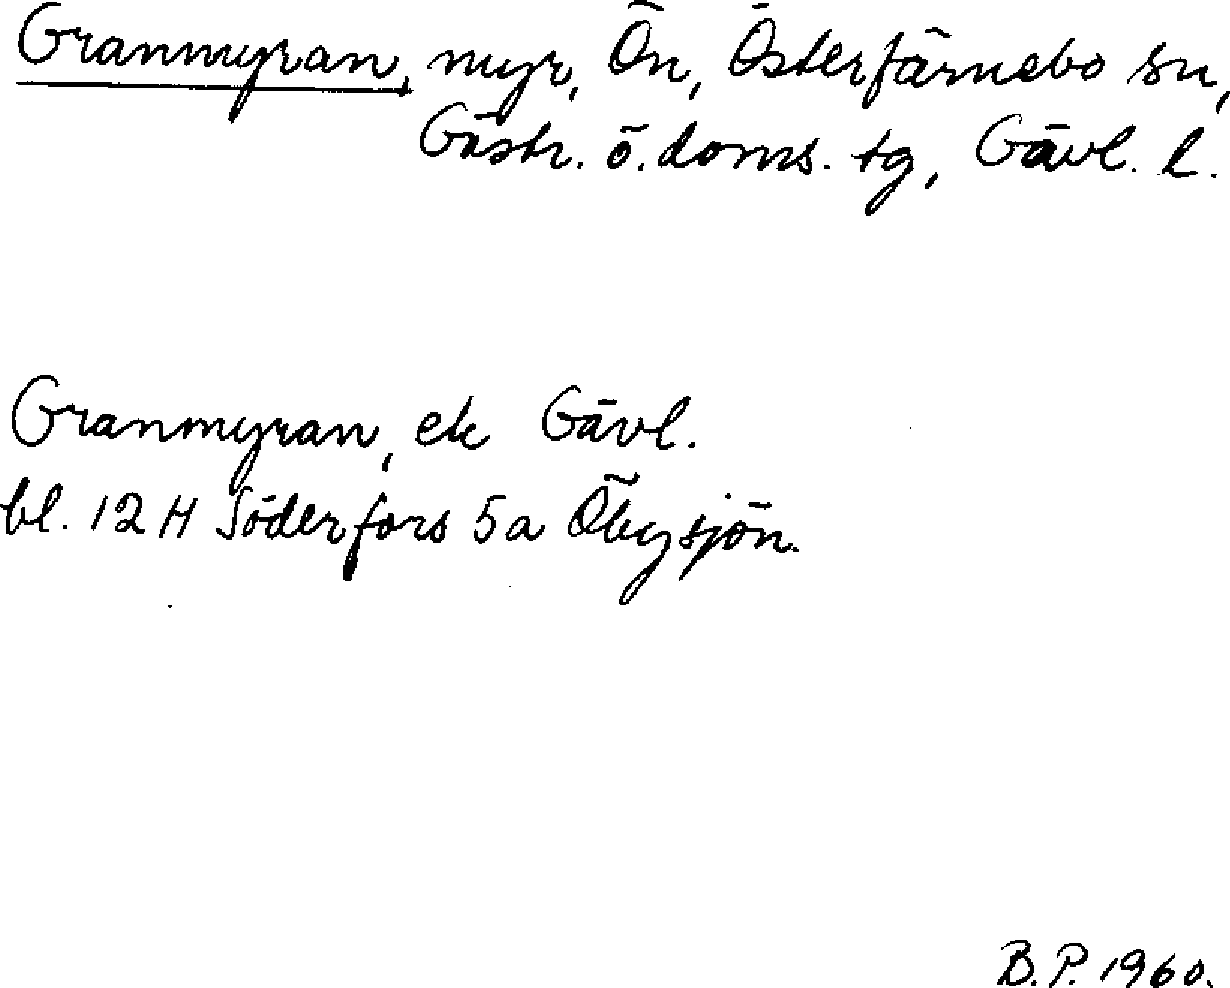 Granmyran, myr, Ön, Österfärnebo sn,
Gästr. ö. doms. tg, Gävl. l.
Granmyran, ek Gävl.
bl. 12 H Söderfors 5a Öbysjön.
B.P. 1960.